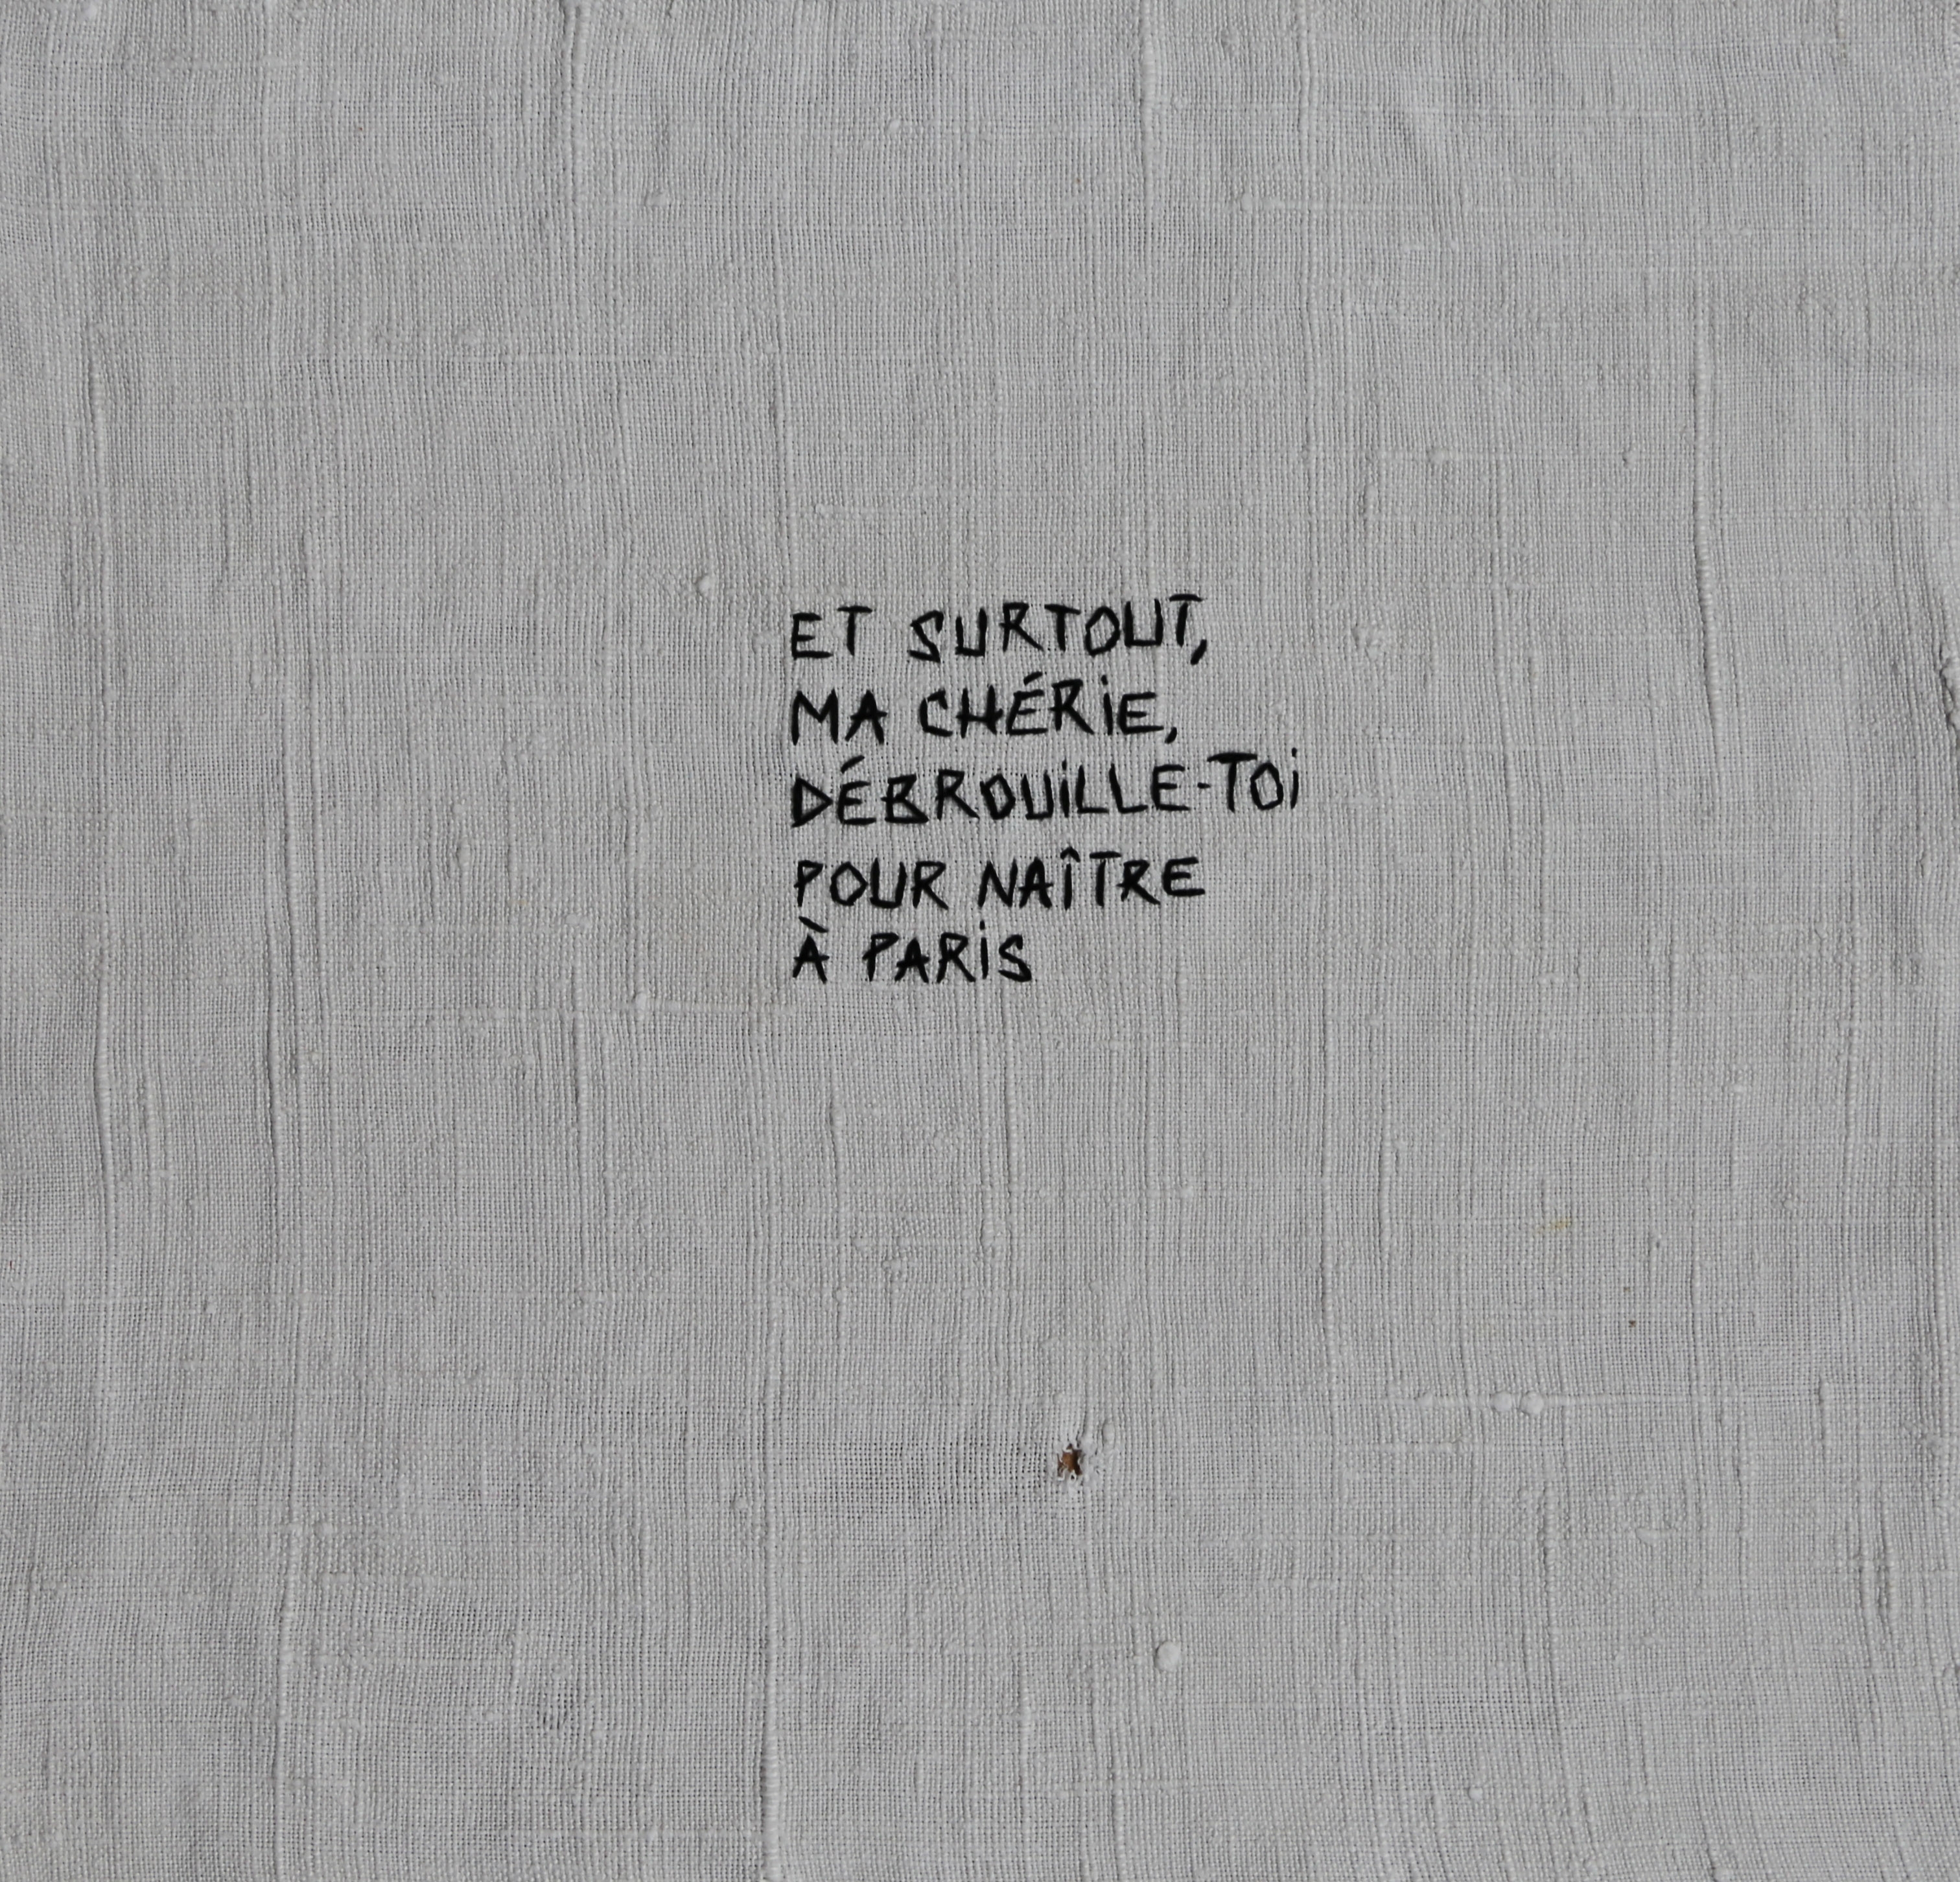 ET SURTOUT,
MA CHÉRiE,
DÉBROUiLLE-TOi
POUR NAÎTRE
À PARiS